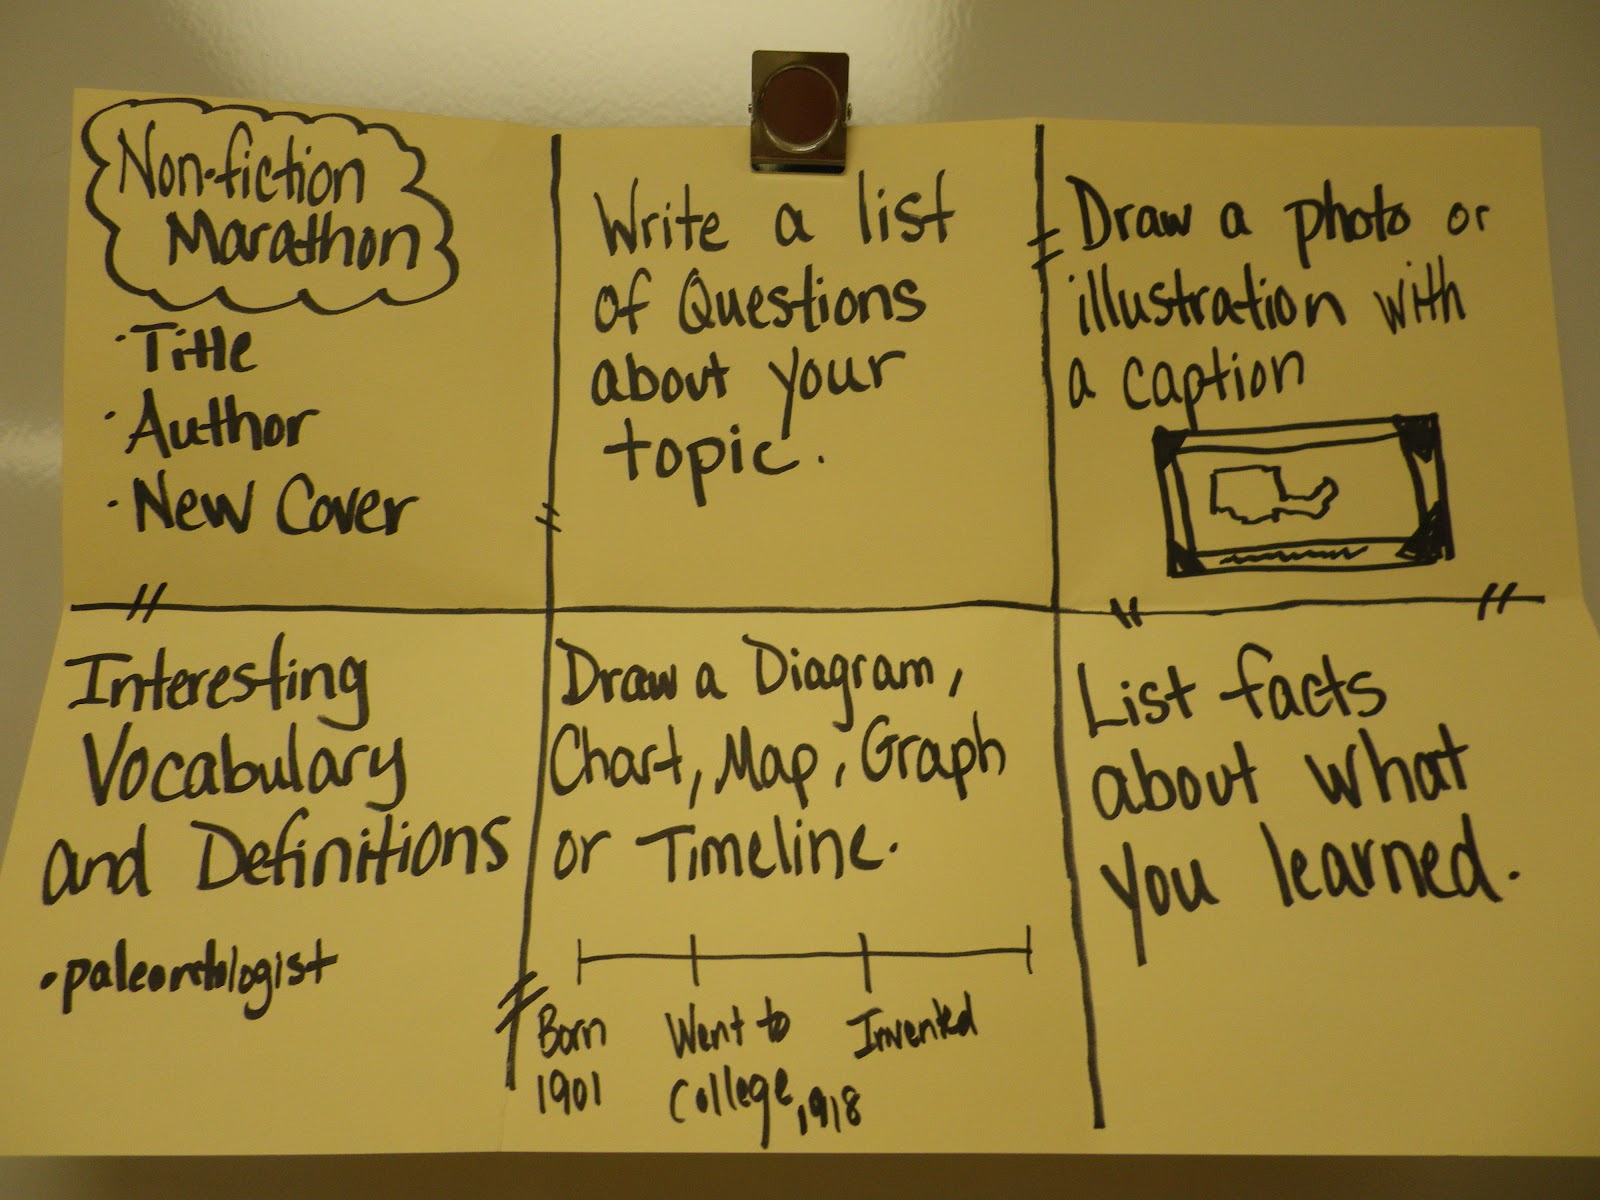 Non-fiction
Marathon
· Title
· Author
· New Cover
Write a list
of Questions
about your
topic.
Draw a photo or
illustration with
a caption
Interesting
Vocabulary
and Definitions
· paleontologist
Draw a Diagram,
Chart, Map, Graph
or Timeline.
Born
1901
Went to
College, 1918
Invented
List facts
about what
you learned.